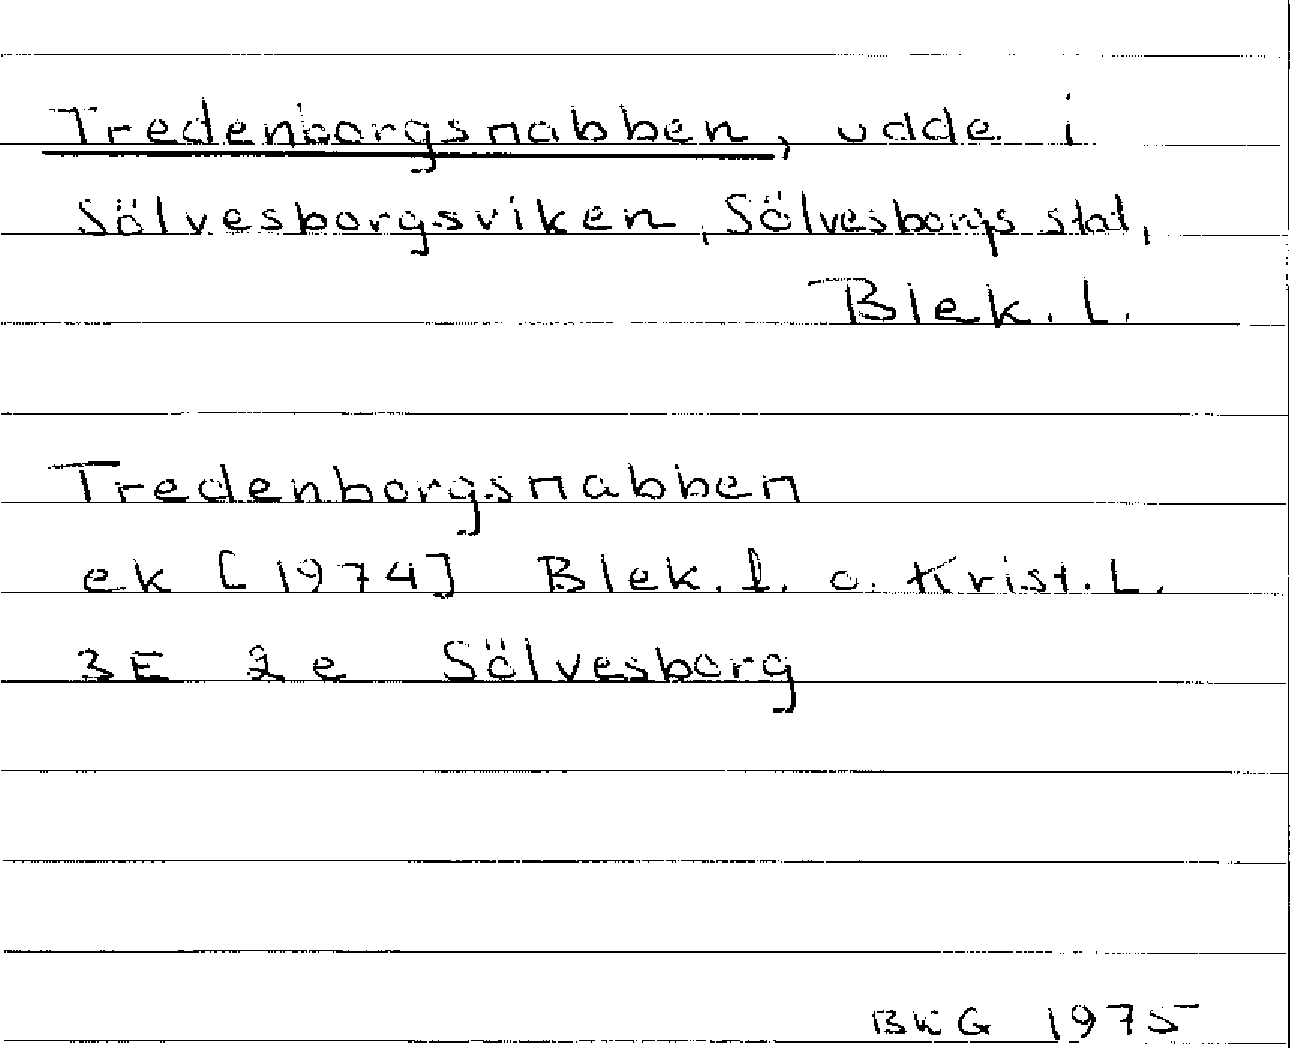 Tredenborgsnabben, udde i
Sölvesborgsviken, Sölvesborgs stad,
Blek. l.
Tredenborgsnabben
ek [1974] Blek. l. o. Krist. L.
3E 2e Sölvesborg
BKG 1975